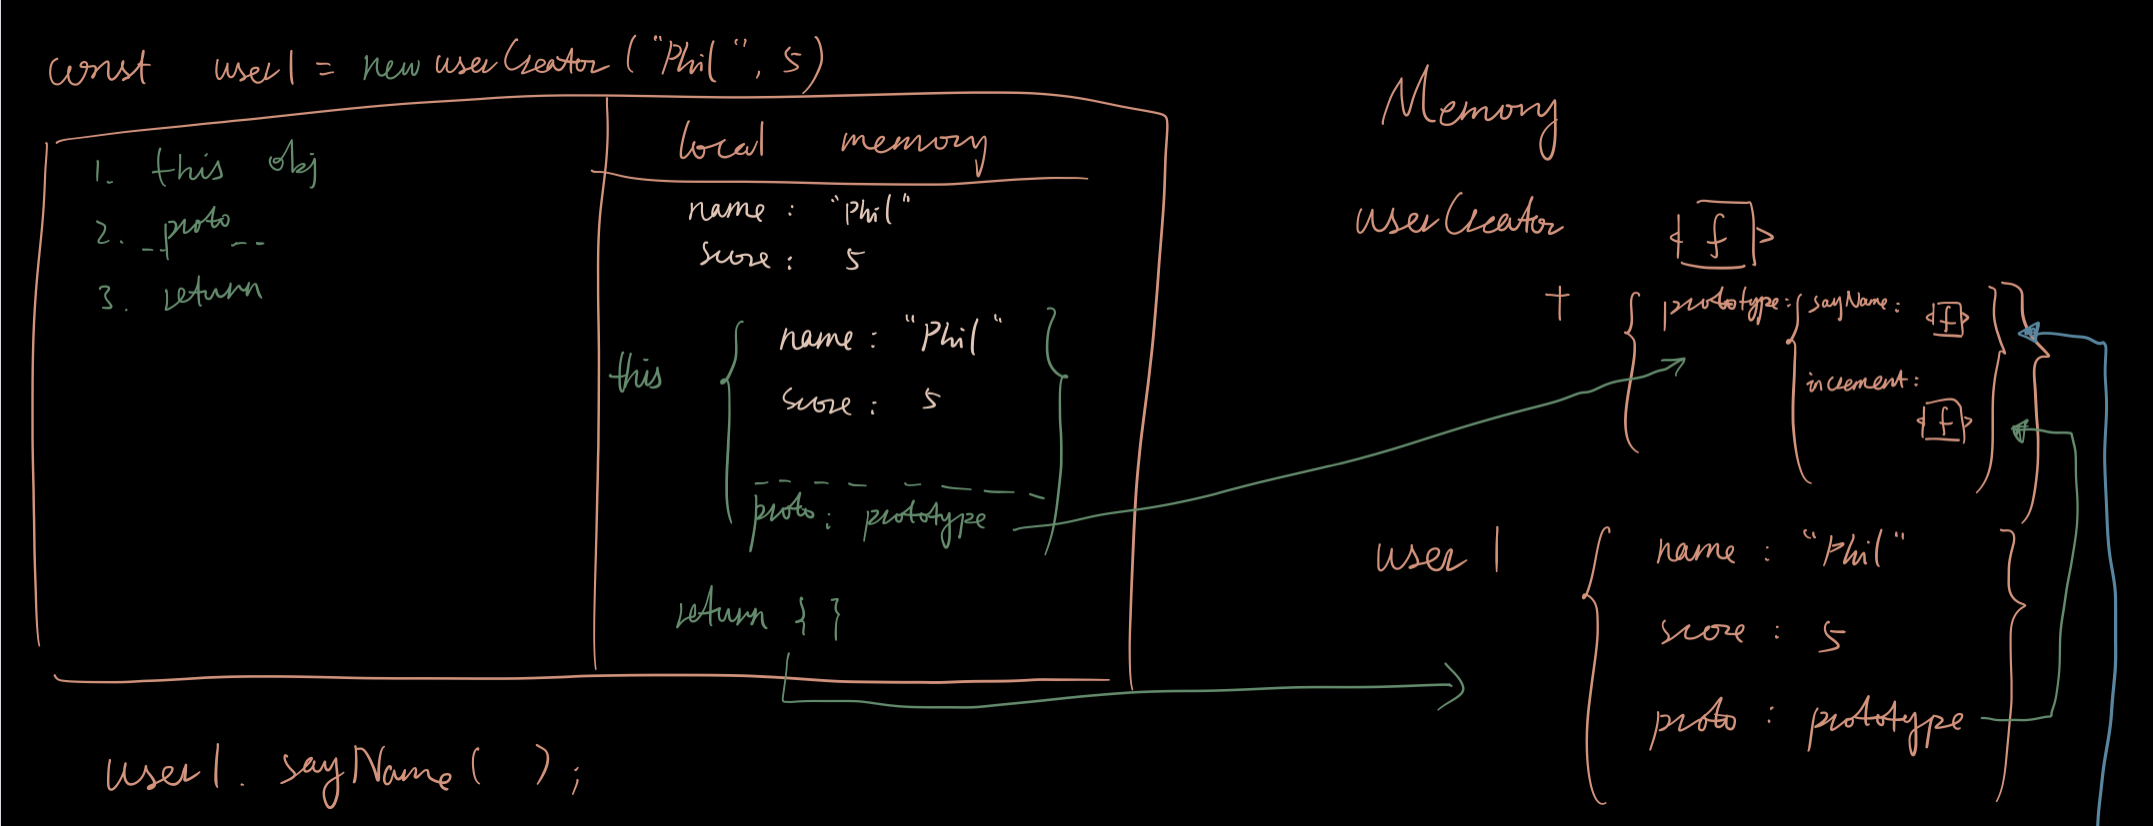 const user1 = new userCreator ("Phil", 5)
1. this obj
2. __proto__
3. return
local memory
name : "Phil"
score : 5
this { name : "Phil"
score : 5
__proto__ : prototype }
return { }
user1. sayName( );
Memory
userCreator f
+ { prototype: { sayName : f
increment : f } }
user1 { name : "Phil"
score : 5
proto : prototype }